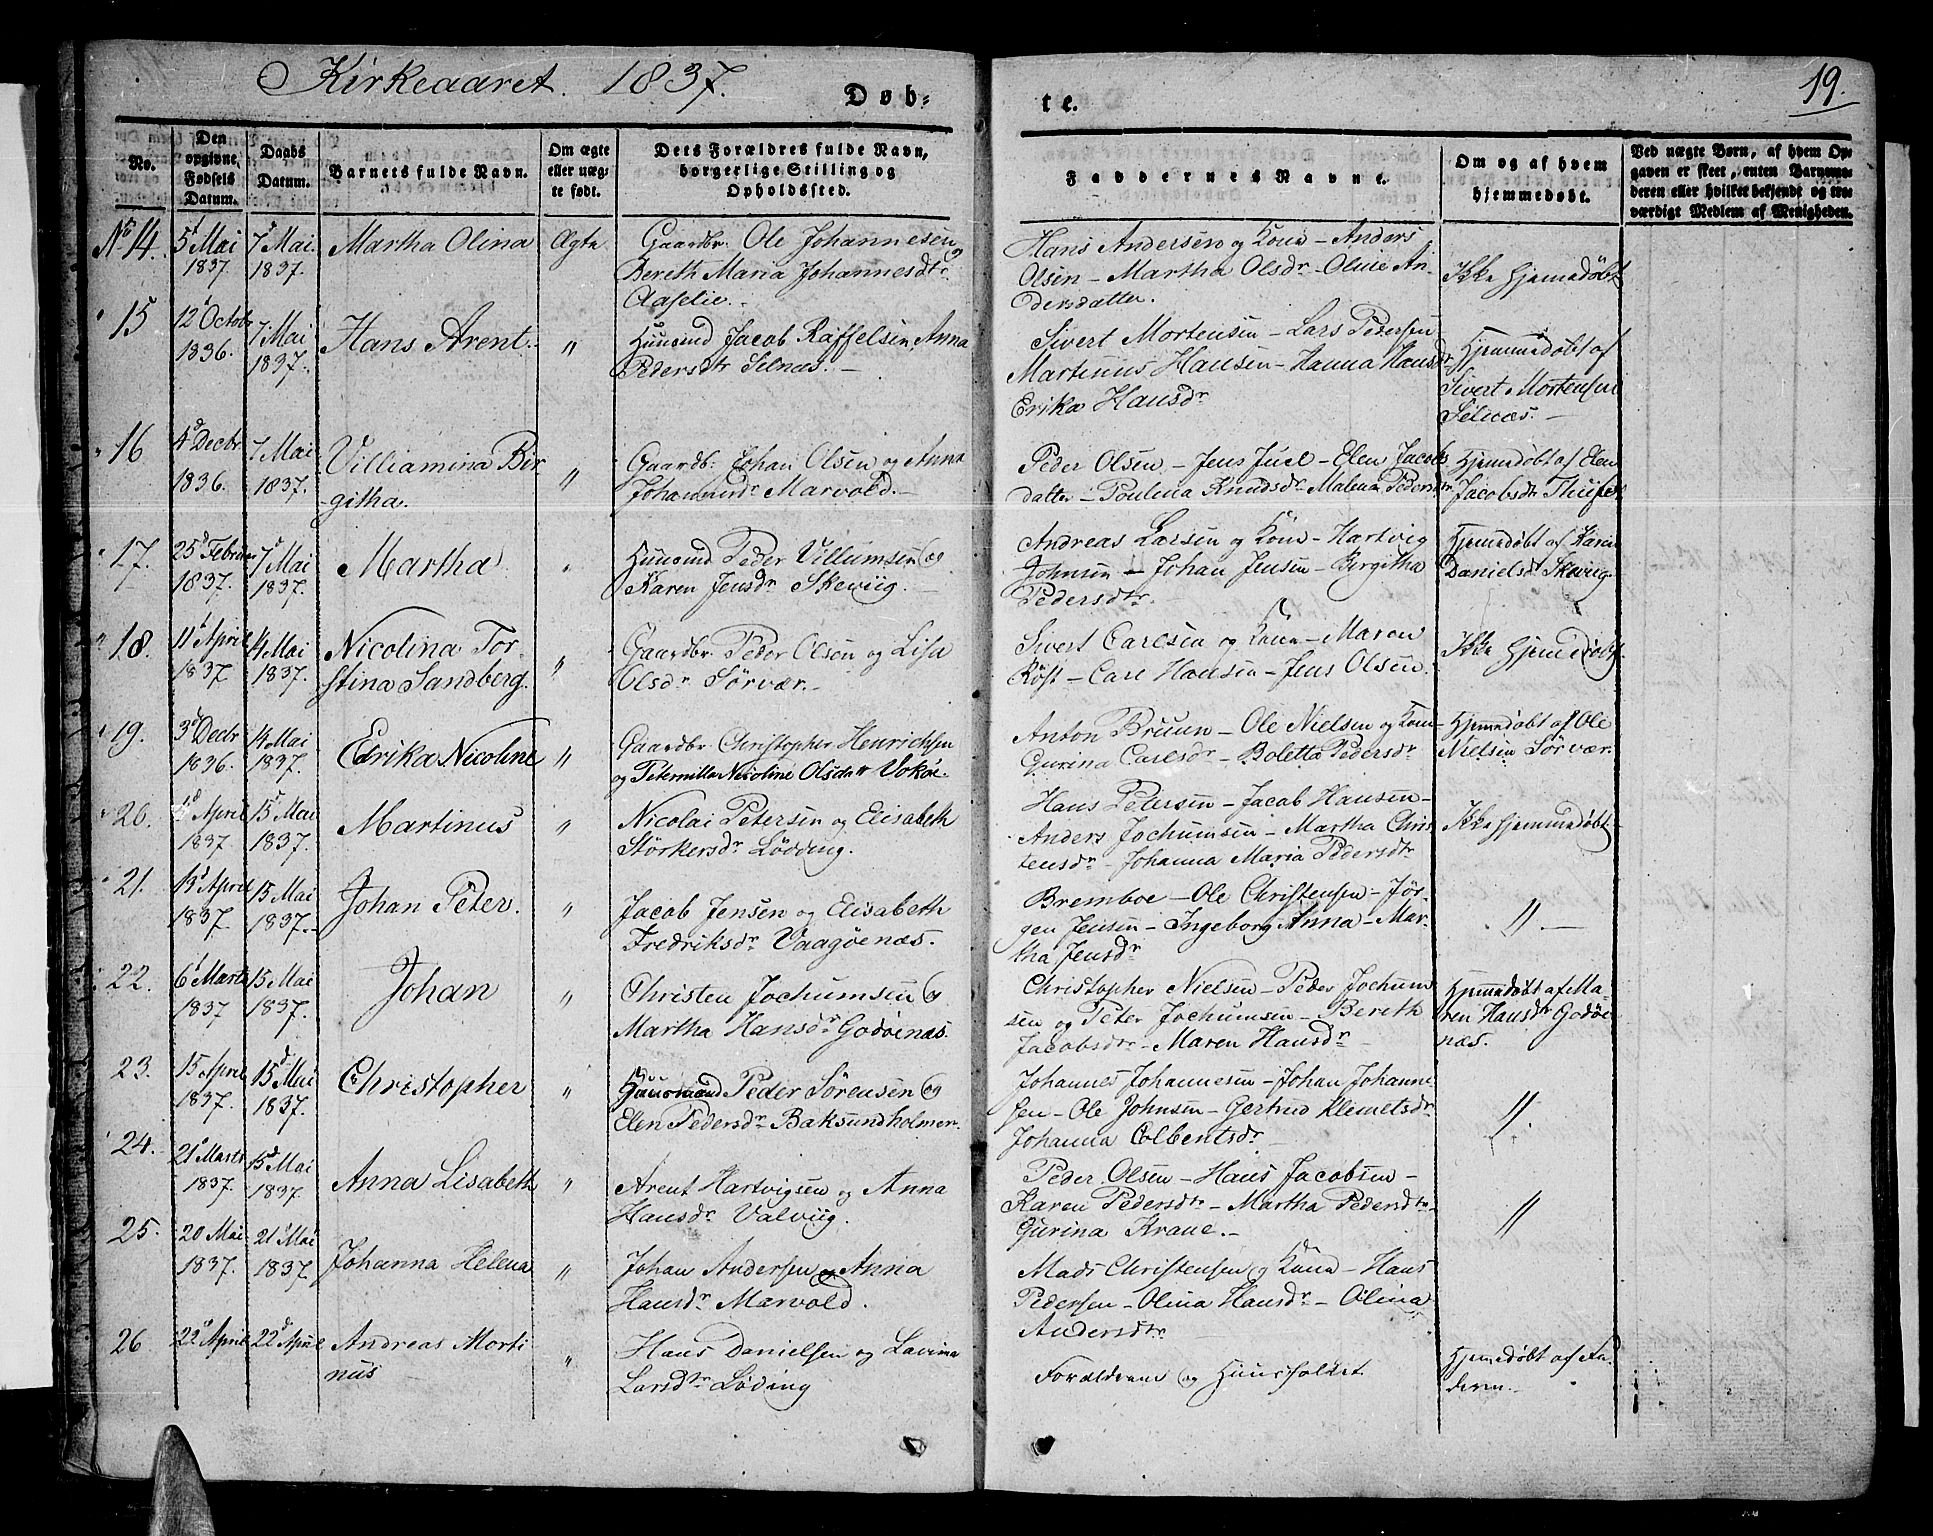 Kirkeaaret. 1837.
Døb-
te.
19.
No.
Den opgivne Fødsels Datum.
Daabs Datum.
Barnets fulde Navn.
Om ægte eller uæg-
te født.
Dets Forældres fulde Navn,
borgerlige Stilling og
Opholdsted.
Faddernes Navne.
Om og af hvem
hjemmedøbt.
Ved uægte Børn, af hvem Op-
gaven er skeet, enten Barnemo-
deren eller hvilket bekjendt og tro-
værdigt Medlem af Menigheden.
No 14. 5 Mai 1837 7 Mai. 1837. Martha Olina Ægte
Gaardbr. Ole Johannesen og
Bereth Maria Johannesdtr
Aaselie.
Hans Andersen og Kone - Anders
Olsen - Martha Olsdr - Oline An-
dersdatter.
Ikke hjemedøbt
15 12 Octobr 1836. 7 Mai 1837. Hans Arent. "
Huusmd Jacob Raffelsen, Anna
Pedersdtr Selnæs.
Sivert Mortensen - Lars Pedersen
Martinus Hansen - Hanna Hansdr
Erika Hansdr
Hjemmedøbt af
Sivert Mortensen
Selnæs.
16 4d Decbr 1836. 7 Mai 1837. Villiamina Bir-
githa. "
Gaardb. Johan Olsen og Anna
Marvold.
Peder Olsen - Jens Juel - Elen Jacobs
datter - Poulena Knudsdr Malena Pedersdtr
Hjemedøbt af Elen
Jacobsdtr
17. 25d Februar 1837. 7d Mai 1837. Martha "
Huusmd Peder Villumsen og
Karen Jensdr Skeviig.
Andreas Larsen og Kone - Hartvig
Johnsen - Johan Jensen - Birgitha
Pedersdtr.
Hjemedøbt af Karen
Danielsdtr Skeviig.
18. 11 April 1837 4 Mai 1837. Nicolina Tor-
stina Sandberg. "
Gaardbr. Peder Olsen og Lisa
Olsdr Sørvær.
Sivert Carlsen og Kone - Maren
Röst - Carl Hansen - Jens Olsen.
Ikke hjemedøbt.
19. 3d Decbr 1836. 4 Mai 1837. Edrika Nicoline "
Gaardbr Christopher Henrichsen
og Petermille Nicoline Olsdatt Vokøe.
Anton Bruun - Ole Nielsen og Kone
Gurina Carlsdr - Boletta Pedersdr
Hjemedøbt af Ole
Nielsen Sørvær.
20. April 1837 15d Mai 1837. Martinus "
Nicolai Petersen og Elisabeth
Störkersdr Lödding.
Hans Petersen - Jacob Hansen -
Anders Jochumsen - Martha Chris
tensdr - Johanna Maria Pedersdtr
Ikke hjemmedøbt
21. April 1837. 15 Mai 1837. Johan Peter. "
Jacob Jensen og Elisabeth
Fredriksdr Vaagøenæs.
Bremboe - Ole Christensen - Jör-
gen Jensen - Ingeborg Anna - Mar-
tha Jensdr
"
22. 6 Marts 1837 15 Mai 1837. Johan "
Christen Jochumsen og
Martha Hansdr Godøenæs.
Christopher Nielsen - Peder Jochum
sen og Peter Jochumsen - Bereth
Jacobsdtr - Maren Hansdr
Hjemedøbt af Ma-
ren Hansdr Godøe-
næs.
23. 15 April 1837. 15d Mai 1837. Christopher "
Huusmand Peder Sørensen og
Elen Pedersdr Baksundholmen.
Johannes Johannesen - Johan Johanne
sen - Ole Johnsen - Gertrud Klemetsdr
Johanna Colbentsdr
"
24. 21d Marts 1837. 15d Mai 1837 Anna Lisabeth "
Arent Hartvigsen og Anna
Hansdr Valviig.
Peder Olsen - Hans Jacobsen -
Karen Pedersdtr - Martha Pedersdtr
Gurina Krane.
"
25. 20 Mai 1837. 21 Mai 1837. Johanna Helena "
Johan Andersen og Anna
Hansdr Marvold.
Mads Christensen og Kone - Hans
Pedersen - Olina Hansdr - Olina
Andersdtr
26 22d April 22d April Andreas Morti
nus "
Hans Danielsen og Lavina
Larsdtr Löding
Forældrene og Huusfolket
Hjemedøbt af Fa
deren.